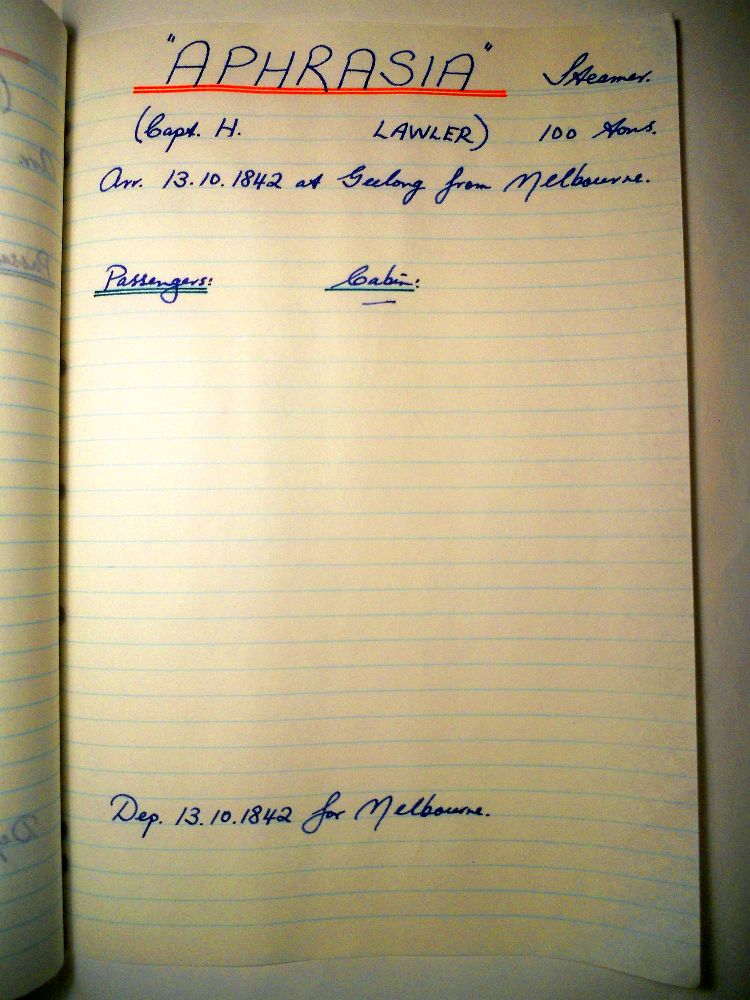 "APHRASIA" Steamer.
(Capt. H. LAWLER) 100 tons.
Arr. 13.10.1842 at Geelong from Melbourne.
Passengers: Cabin:
—
Dep. 13.10.1842 for Melbourne.